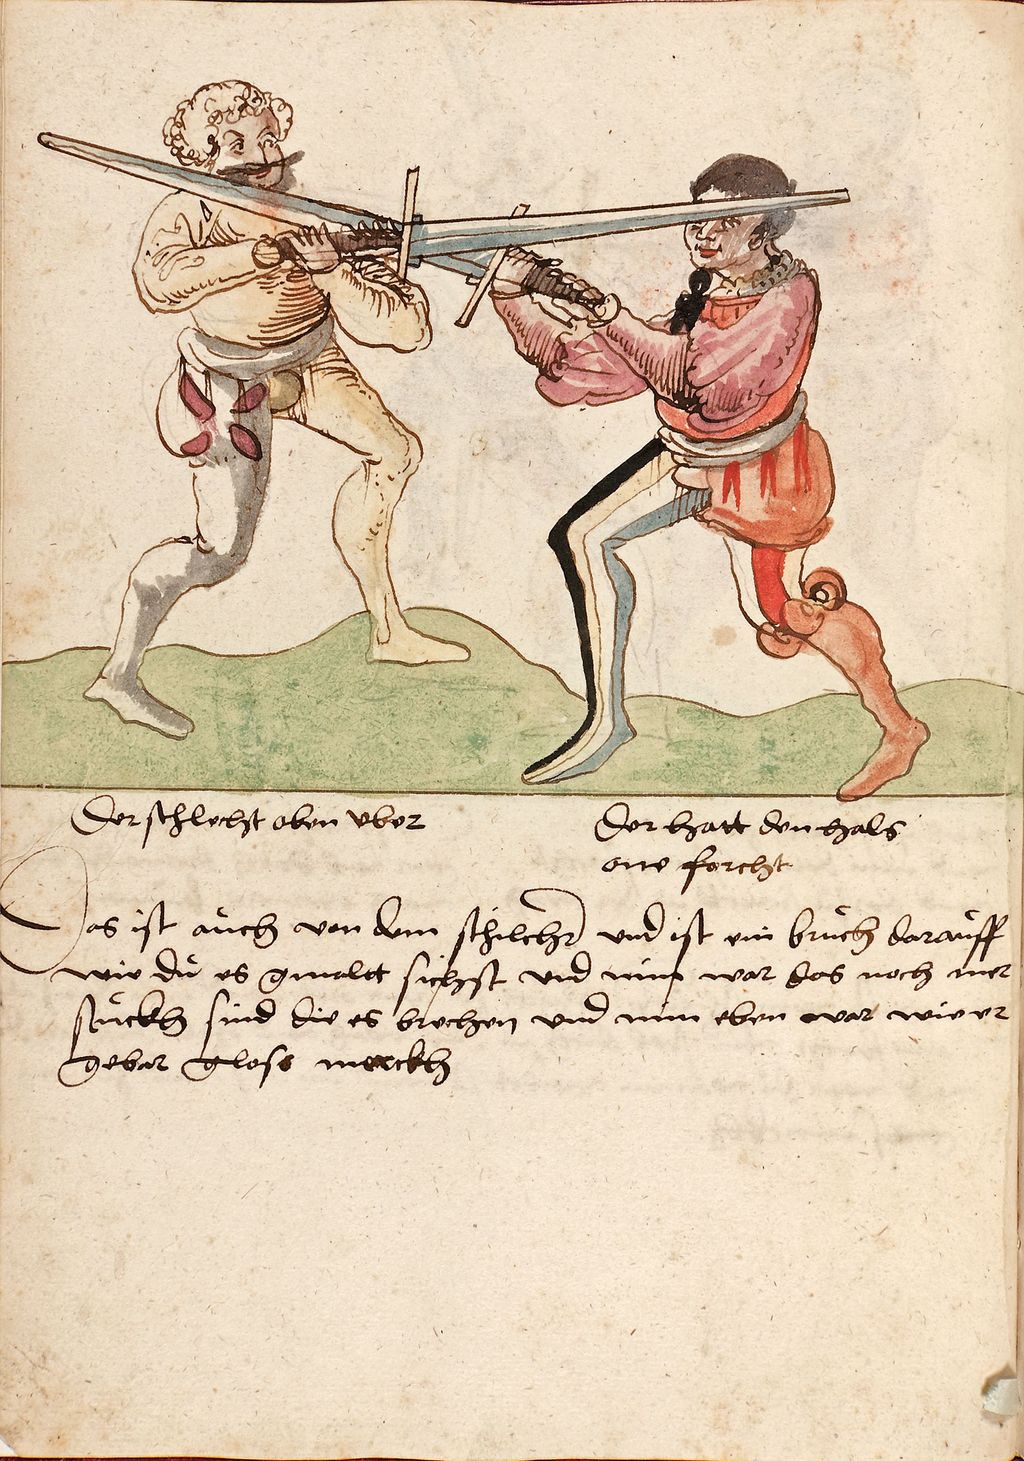 Der schlecht oben vber
Der hatt den hals
one forcht
Das ist aüch von dem schilchr vnd ist ein brüch daraüff
wie dü es gmalet sichst vnd nim war das noch mer
stückh sind die es brechen vnd nim eben war wie er
gebar glose merckh